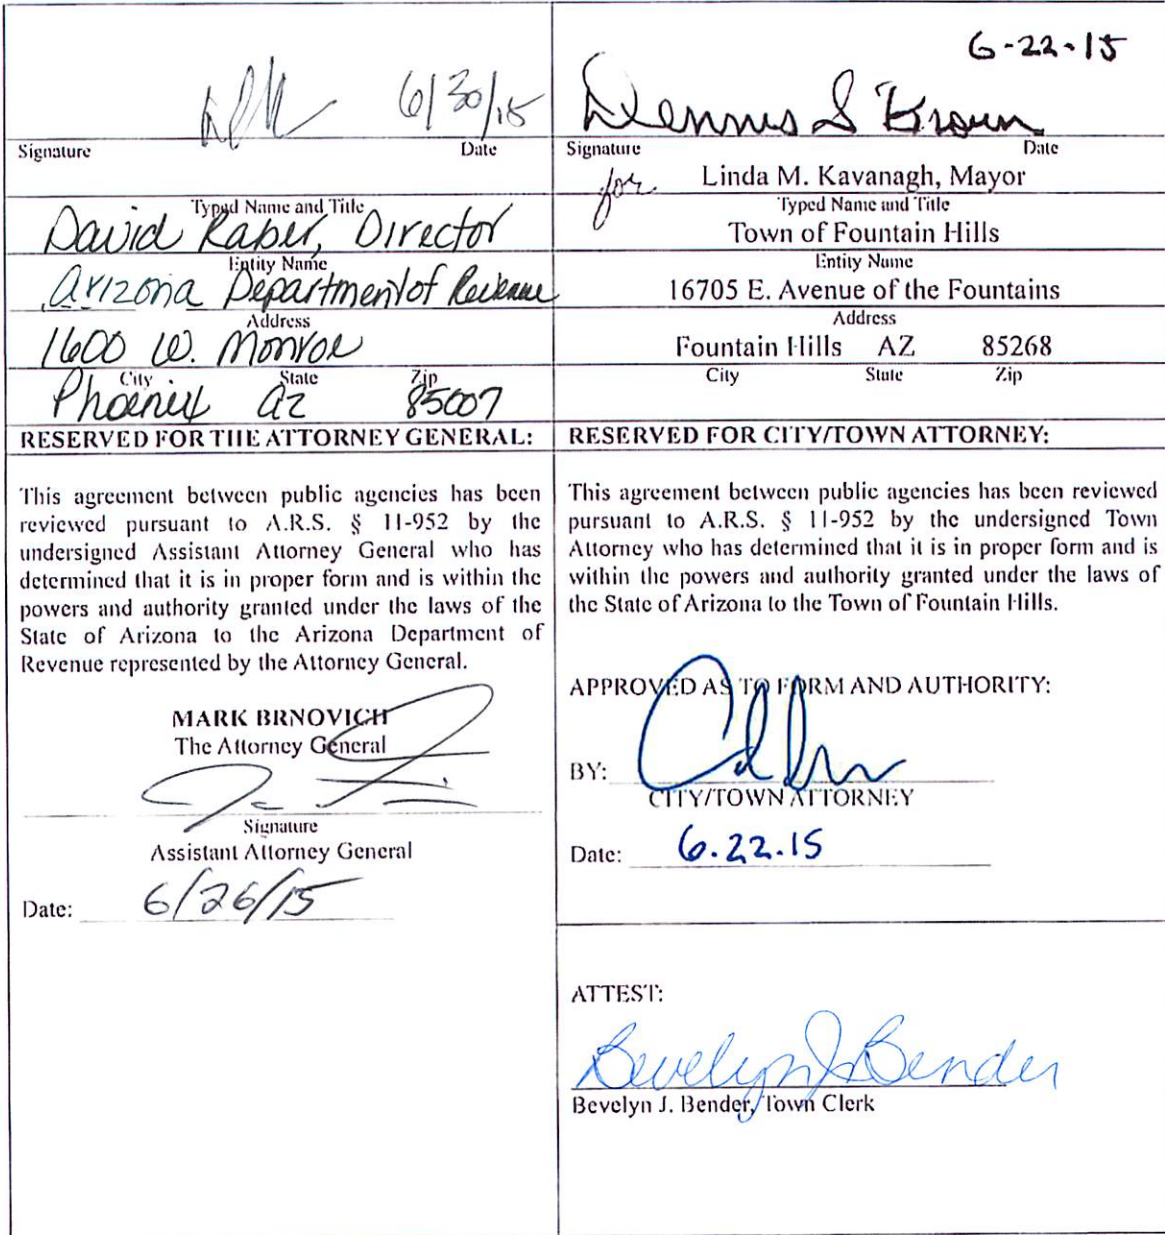 6/30/15
Signature Date
Typed Name and Title
David Raber, Director
Entity Name
Arizona Department of Revenue
Address
1600 W. Monroe
City State Zip
Phoenix az 85007
RESERVED FOR THE ATTORNEY GENERAL:
This agreement between public agencies has been
reviewed pursuant to A.R.S. § 11-952 by the
undersigned Assistant Attorney General who has
determined that it is in proper form and is within the
powers and authority granted under the laws of the
State of Arizona to the Arizona Department of
Revenue represented by the Attorney General.
MARK BRNOVICH
The Attorney General
Signature
Assistant Attorney General
Date: 6/26/15
6-22-15
Dennis S Brown
Signature Date
for Linda M. Kavanagh, Mayor
Typed Name and Title
Town of Fountain Hills
Entity Name
16705 E. Avenue of the Fountains
Address
Fountain Hills AZ 85268
City State Zip
RESERVED FOR CITY/TOWN ATTORNEY:
This agreement between public agencies has been reviewed
pursuant to A.R.S. § 11-952 by the undersigned Town
Attorney who has determined that it is in proper form and is
within the powers and authority granted under the laws of
the State of Arizona to the Town of Fountain Hills.
APPROVED AS TO FORM AND AUTHORITY:
BY:
CITY/TOWN ATTORNEY
Date: 6.22.15
ATTEST:
Bevelyn J Bender
Bevelyn J. Bender, Town Clerk